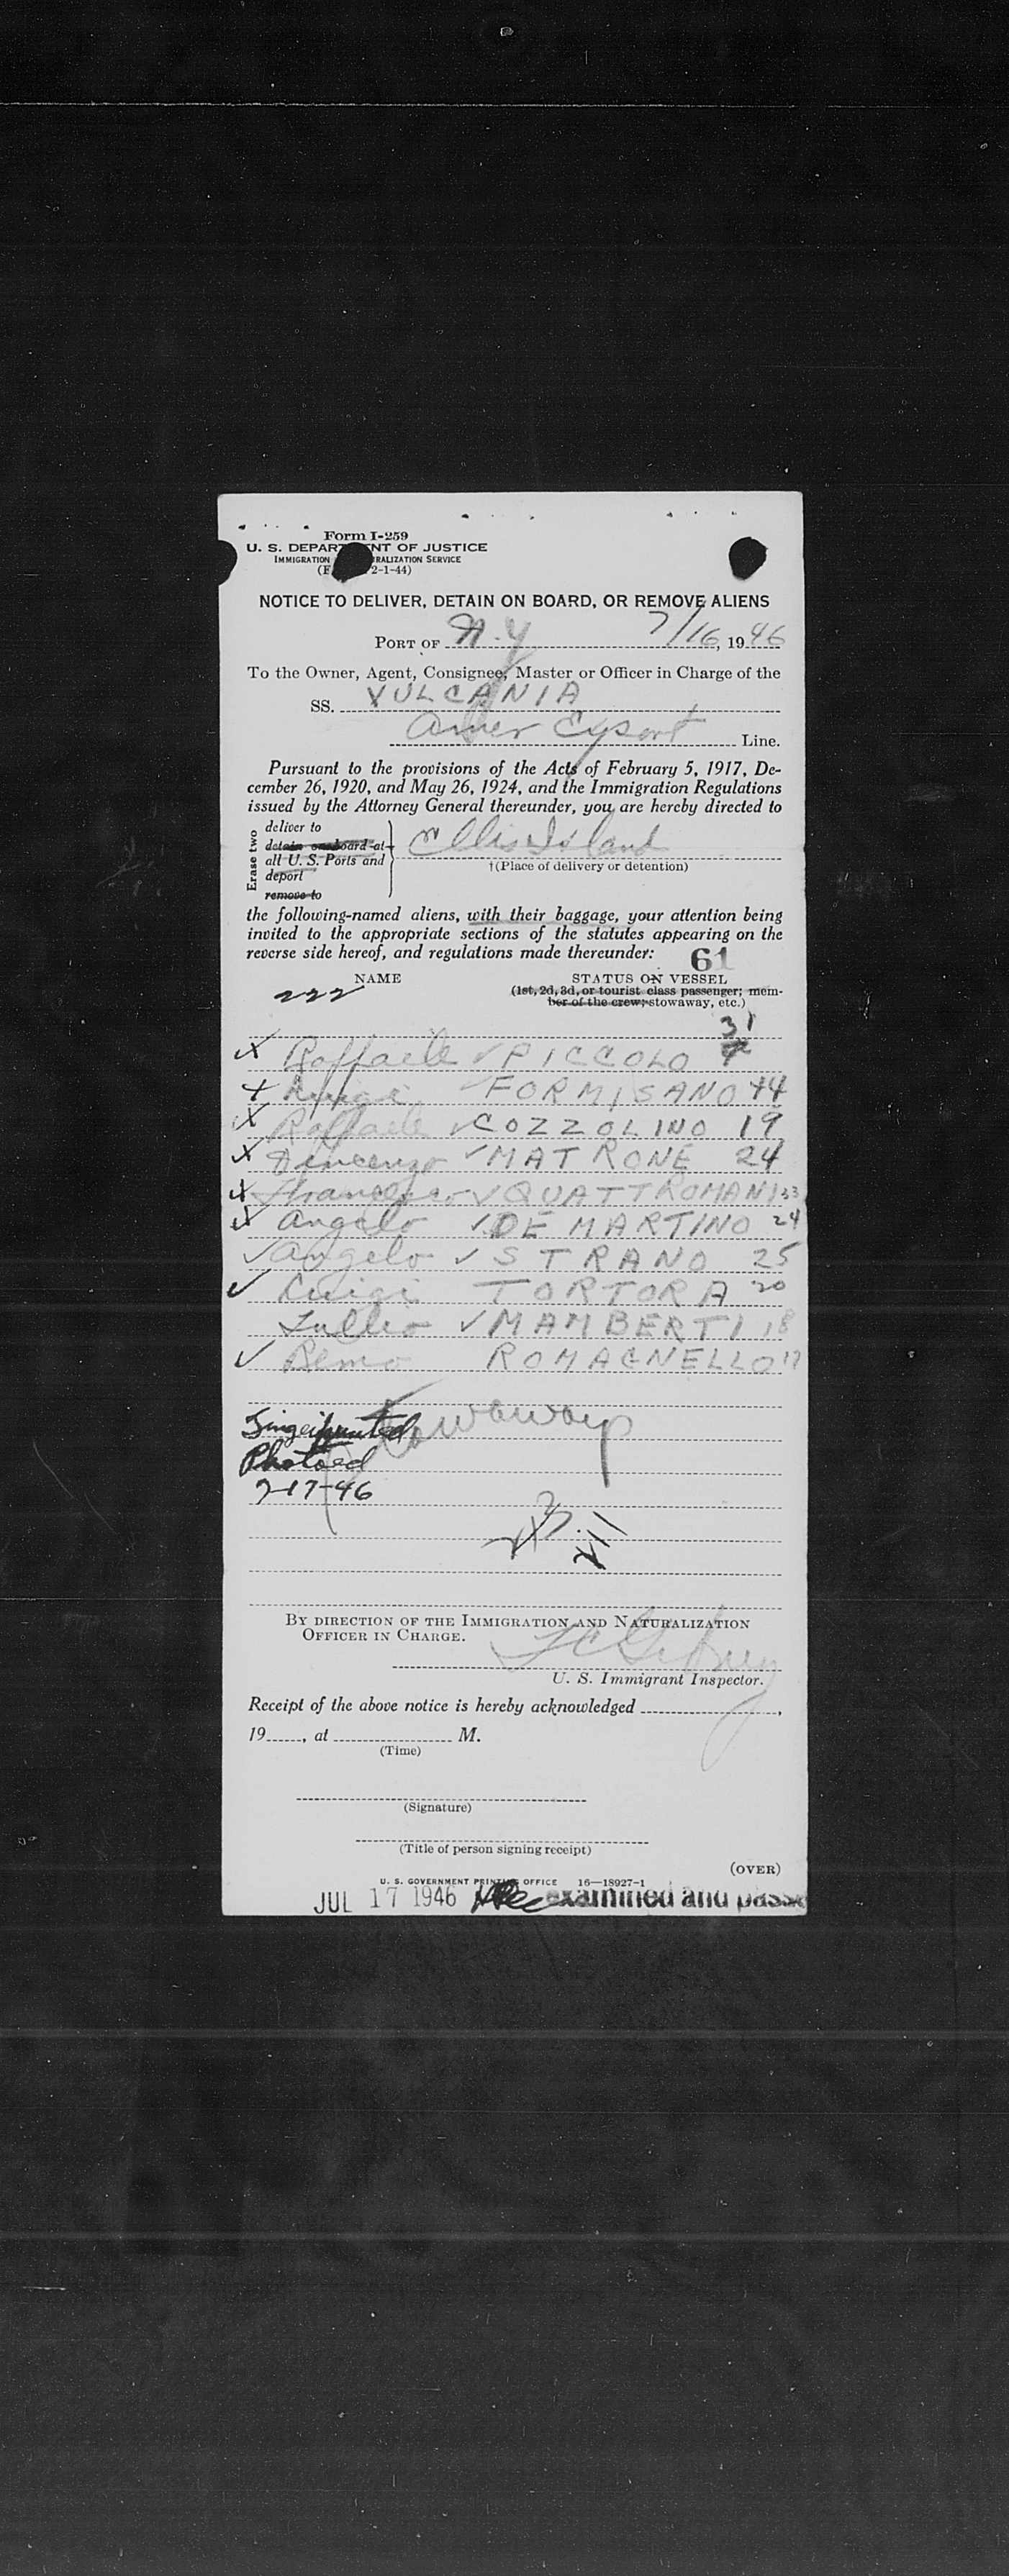 Form I-259
U. S. DEPAR NT OF JUSTICE
IMMIGRATION RALIZATION SERVICE
2-1-44)
NOTICE TO DELIVER, DETAIN ON BOARD, OR REMOVE ALIENS
PORT OF N.Y 7/16, 1946
To the Owner, Agent, Consignee, Master or Officer in Charge of the
SS. VULCANIA
Amer Export Line.
Pursuant to the provisions of the Acts of February 5, 1917, De-
cember 26, 1920, and May 26, 1924, and the Immigration Regulations
issued by the Attorney General thereunder, you are hereby directed to
Erase two
deliver to
detain on board at
all U. S. Ports and
deport
remove to
Ellis Island
†(Place of delivery or detention)
the following-named aliens, with their baggage, your attention being
invited to the appropriate sections of the statutes appearing on the
reverse side hereof, and regulations made thereunder: 61
NAME STATUS ON VESSEL
222 (1st, 2d, 3d, or tourist class passenger; mem-
ber of the crew; stowaway, etc.)
31
X Raffaele ✓ PICCOLO
X Luigi FORMISANO 44
X Raffaele ✓ COZZOLINO 19
X Vincenzo ✓ MATRONE 24
X Francesco ✓ QUATTROMANI 33
X Angelo ✓ DE MARTINO 24
✓ Angelo ✓ STRANO 25
✓ Luigi TORTORA 20
Tullio ✓ MAMBERTI 18
✓ Remo ROMAGNELLO 17
Stowaways
Fingerprinted
Photoed
7-17-46
BY DIRECTION OF THE IMMIGRATION AND NATURALIZATION
OFFICER IN CHARGE.
U. S. Immigrant Inspector.
Receipt of the above notice is hereby acknowledged
19 , at M.
(Time)
(Signature)
(Title of person signing receipt)
(OVER)
U. S. GOVERNMENT PRINTING OFFICE 16—18927-1
JUL 17 1946 examined and passe